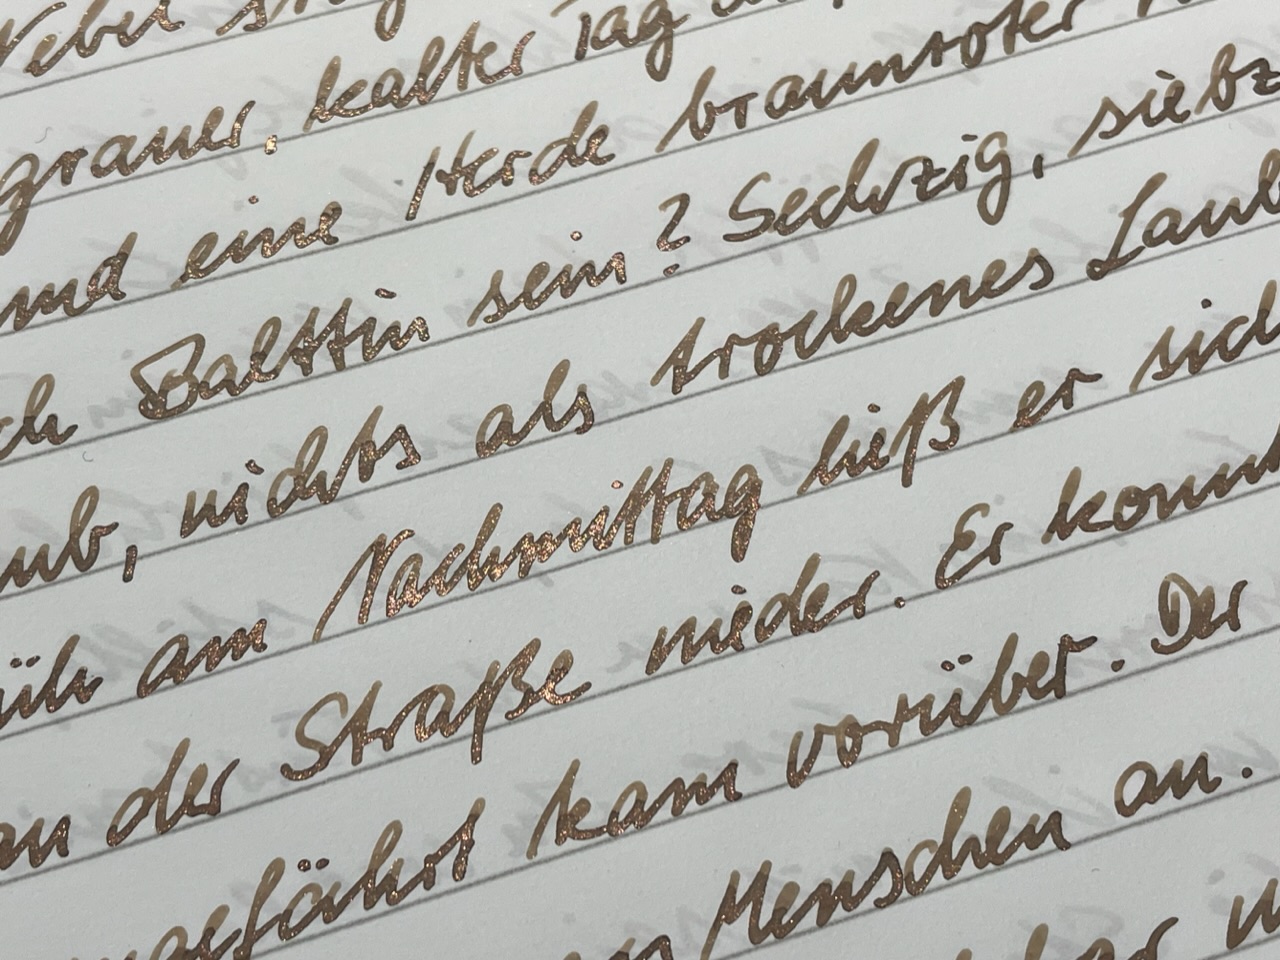 Nebel
grauer, kalter Tag
und eine Herde braunroter
ch Balttin sein? Sechzig, siebz
aub, nichts als trockenes Laub
üh am Nachmittag ließ er sich
an der Straße nieder. Er konnt
ngefährt kam vorüber. Der
Menschen an.